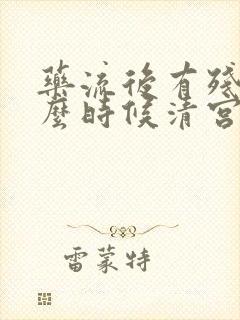 藥流後有殘
麼時候清宮
雷蒙特